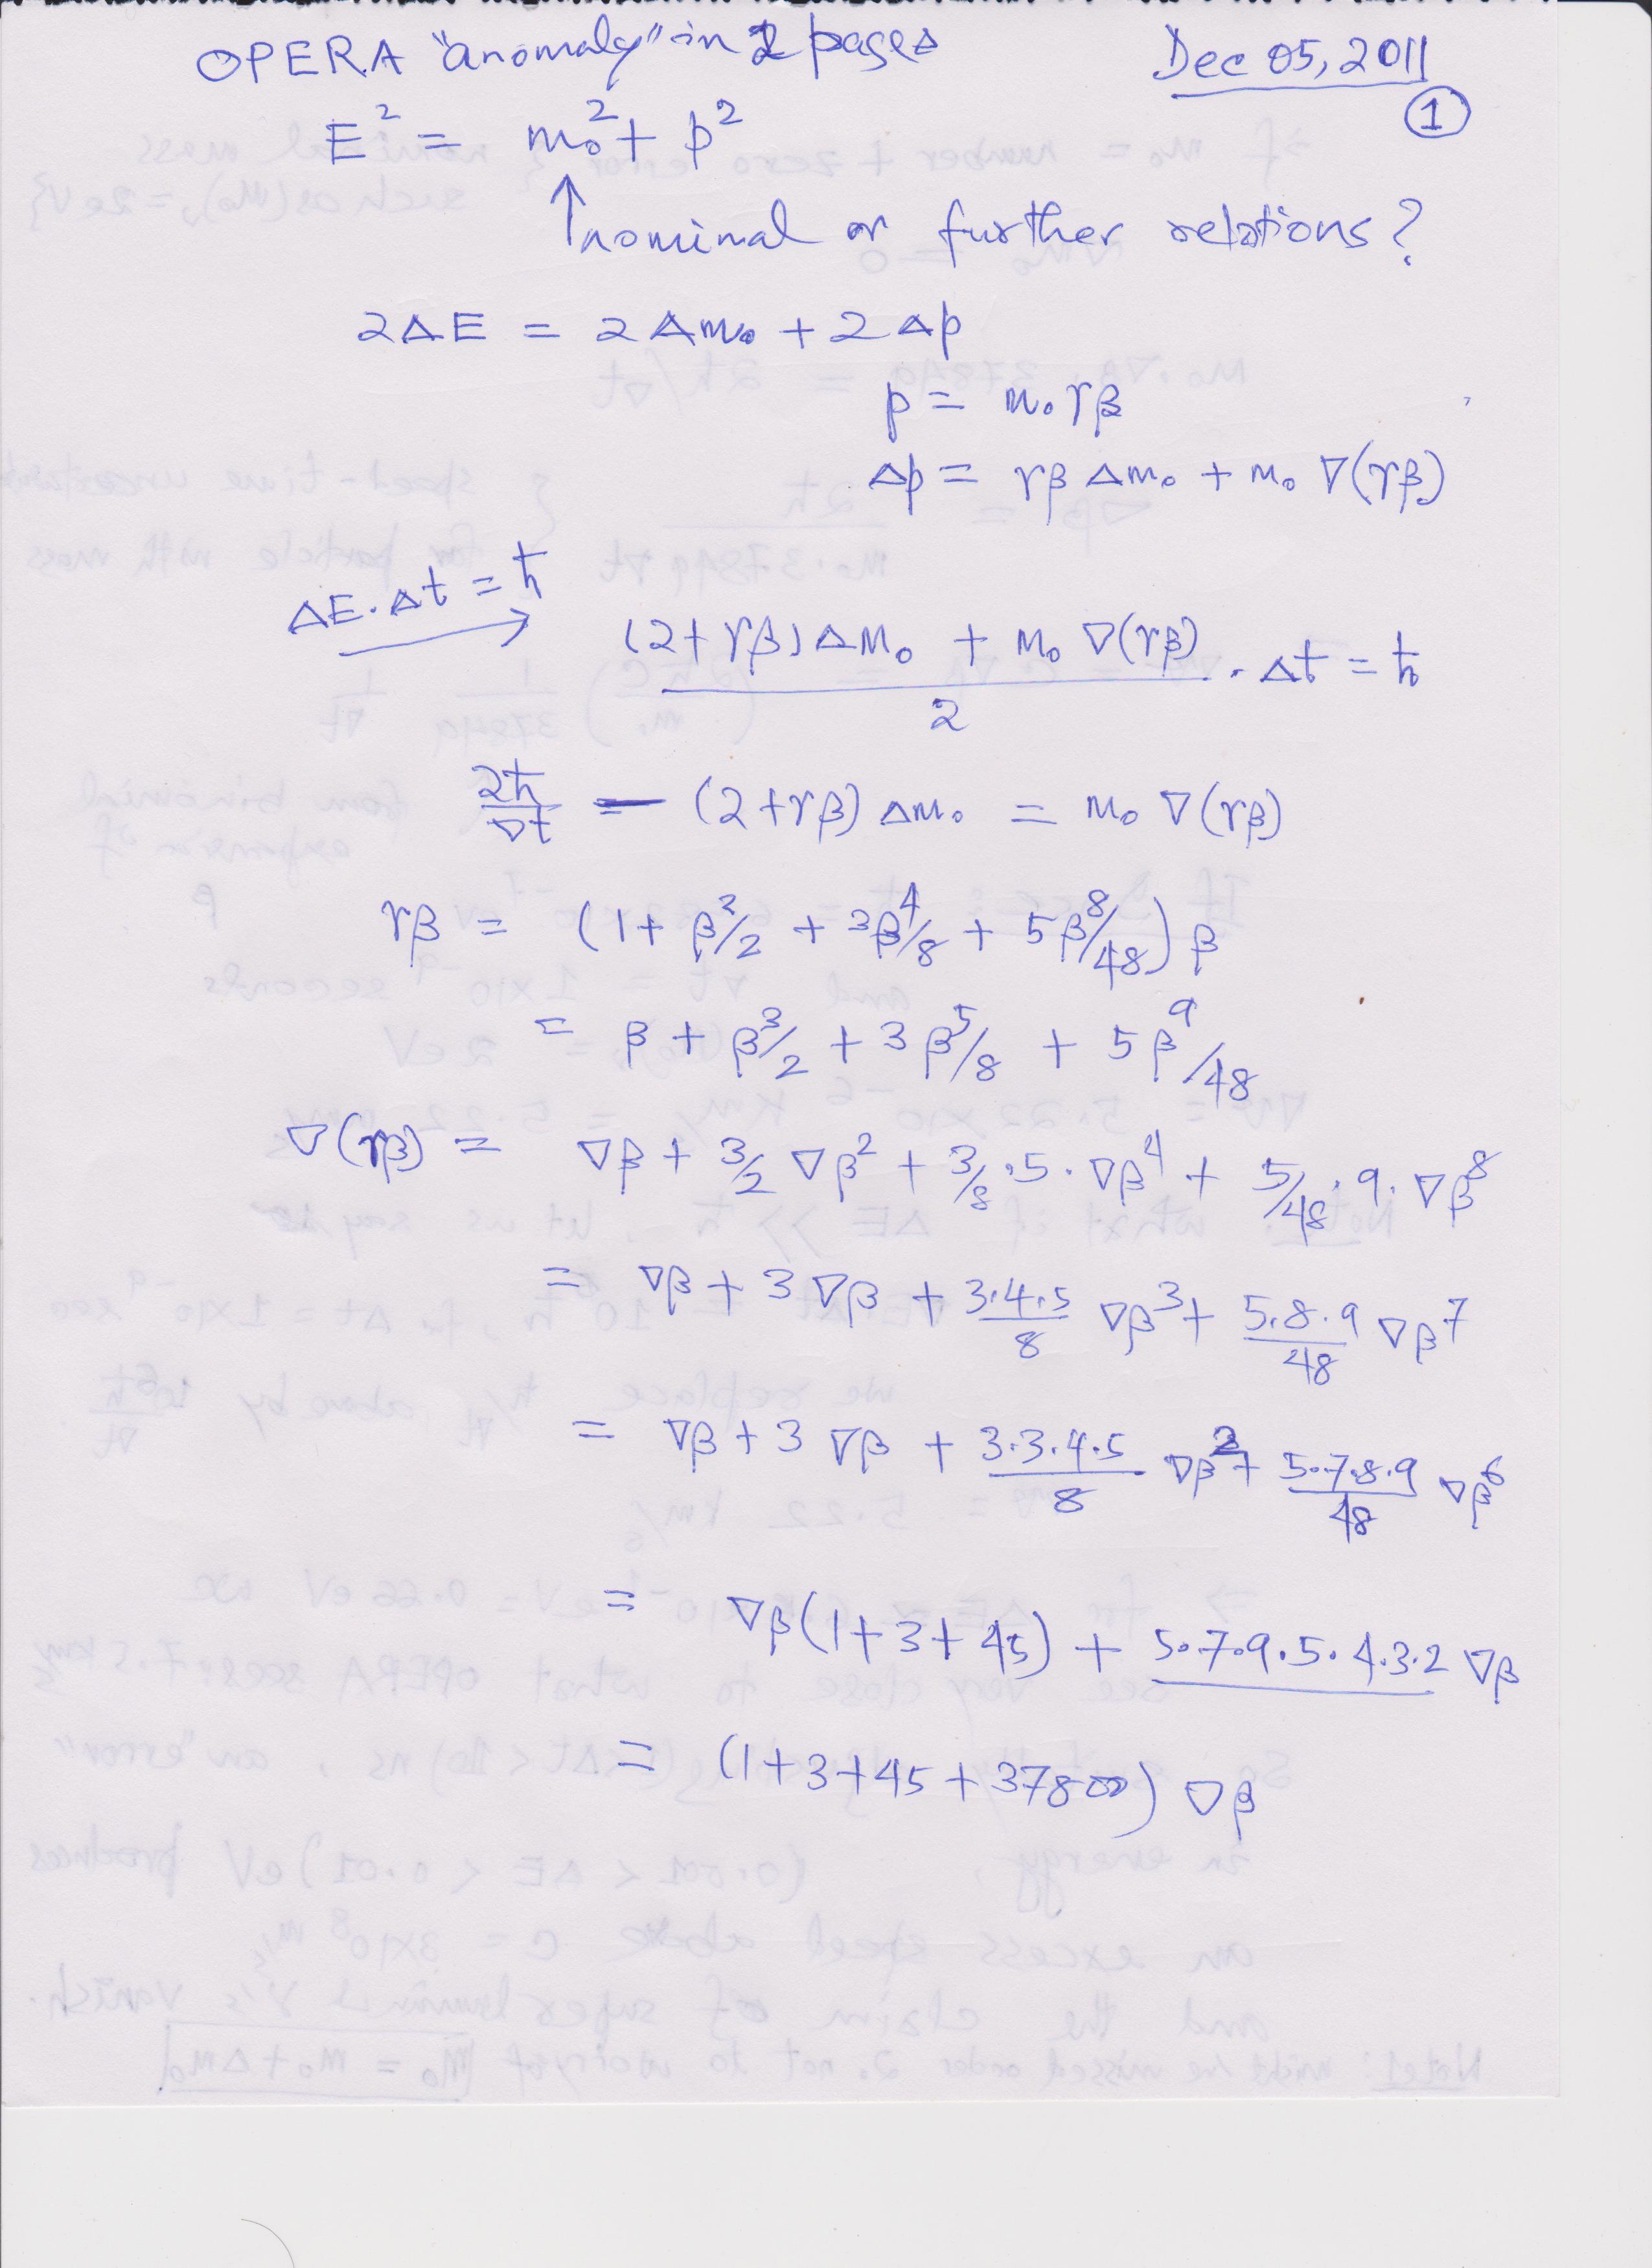 OPERA "anomaly" in 2 pages Dec 05, 2011
①
E² = m₀² + p²
↑ nominal or further relations?
2ΔE = 2Δm₀ + 2Δp
p = m₀γβ
Δp = γβ Δm₀ + m₀ ∇(γβ)
ΔE·Δt = ħ →
(2+γβ)Δm₀ + m₀ ∇(γβ) / 2 · Δt = ħ
2ħ/∇t — (2+γβ) Δm₀ = m₀ ∇(γβ)
γβ = (1 + β²/2 + 3β⁴/8 + 5β⁸/48) β
= β + β³/2 + 3β⁵/8 + 5β⁹/48
∇(γβ) = ∇β + 3/2 ∇β² + 3/8·5·∇β⁴ + 5/48·9·∇β⁸
= ∇β + 3∇β + 3·4·5/8 ∇β³ + 5·8·9/48 ∇β⁷
= ∇β + 3 ∇β + 3·3·4·5/8 ∇β² + 5·7·8·9/48 ∇β⁶
= ∇β(1+3+45) + 5·7·9·5·4·3·2 ∇β
= (1+3+45+37800) ∇β